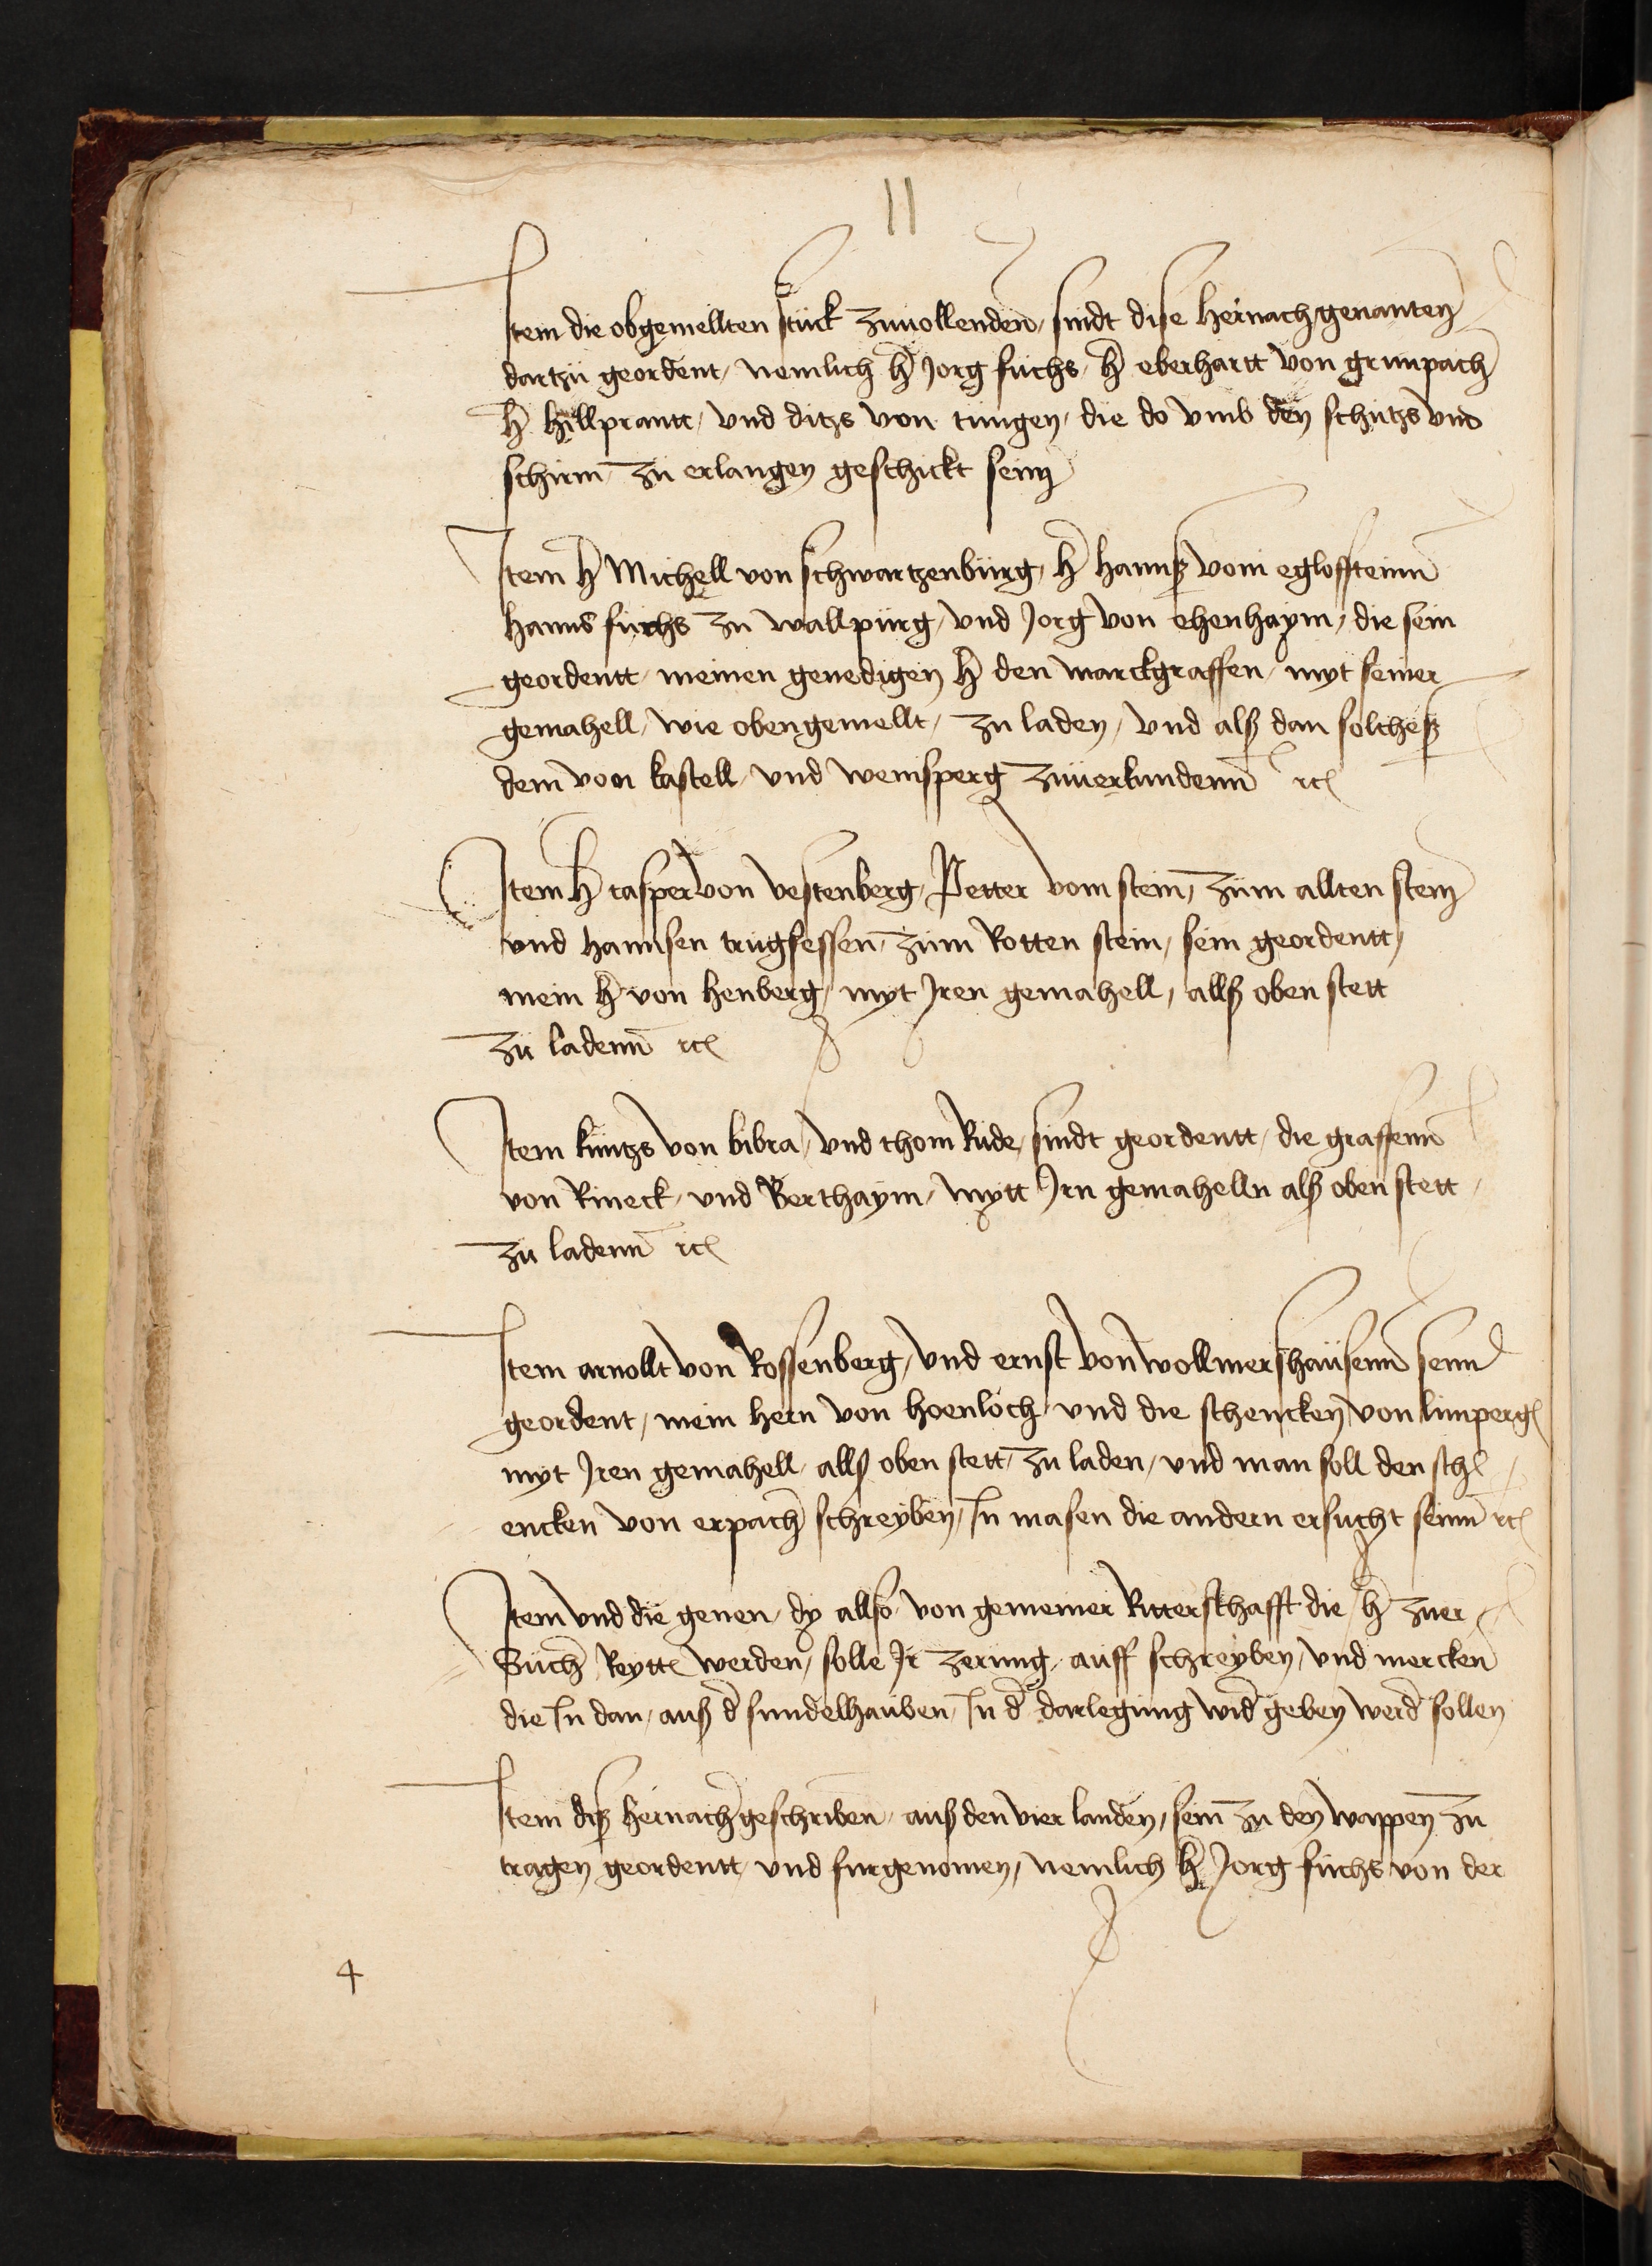 11
Item die obgemellten stuck zuuollenden, sindt dise hernachgenanten
dartzu geordent, nemlich h Jorg fuchs, h eberhartt von grunpach
h hillprantt, vnd ditzs von tungen, die do vmb den schutzs vnd
schirm zu erlangen geschickt sein
Item h Michell von schwartzenburg, h hannß vom egloffsteinn
hanns fuchs zu wallpurg, vnd Jorg von ehenhaym, die sein
geordentt, meinen genedigen h den marckgraffen, myt seiner
gemahell, wie obengemellt, zu laden, vnd alß dan solcheß
dem von kastell, vnd weinsperg zuuerkundenn rc
Item h casper von vestenberg, Petter vom stein, zum allten stein
vnd hannsen trugsessen, zum Rotten stein, sein geordentt,
mein h von henberg, myt Iren gemahell, allß oben stett
zu ladenn rc
Item kuntzs von bibra, vnd thom Rude, sindt geordentt, die graffenn
von Rineck, vnd Berthaym, mytt Irn gemahelln alß oben stett
zu ladenn rc
Item arnollt von Rossenberg, vnd ernst von wollmerßhausenn senn
geordent, mein hern von hoenloch, vnd die schencken von limperg
myt Iren gemahell, allß oben stett, zu laden, vnd man soll den sch
encken von erpach schreyben, In masen die andern ersucht seinn rc
Item vnd die genen, dy allso, von gemeiner Ritterschafft die h zuer
Such Reytt werden, solle Ir zerung, auff schreyben, vnd mercken
die In dan, auß d sundelhauben, In d darlegung wid geben werd sollen
Item diß hernachgeschriben, auß den vier landen, sein zu den wappen zu
tragen geordentt, vnd furgenomen, nemlich h Jorg fuchs von der
4